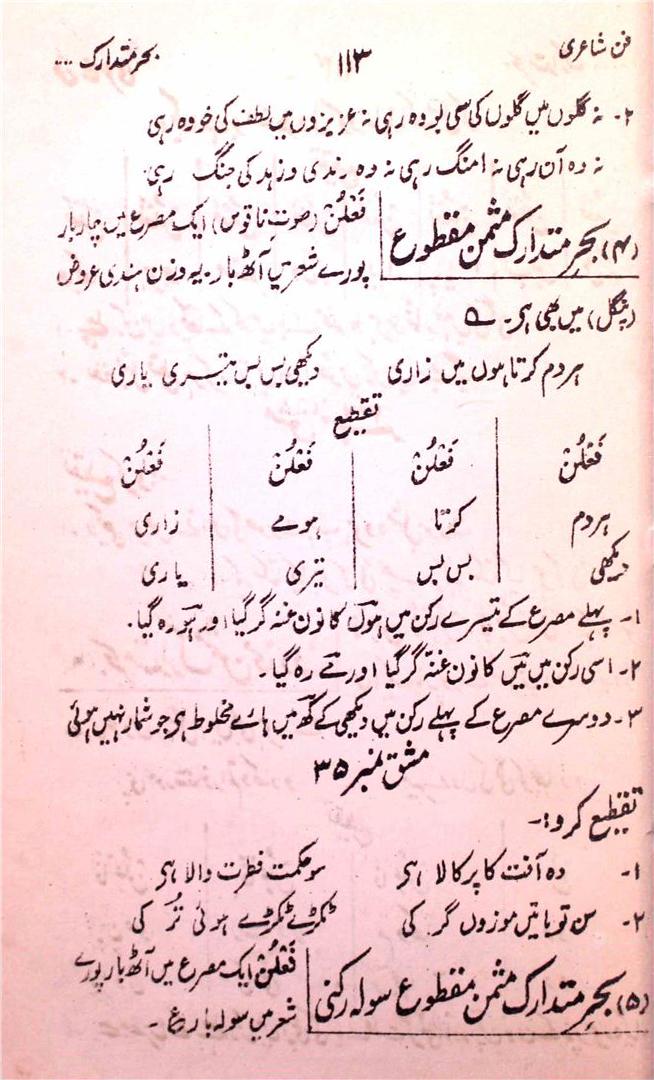 فن شاعری ۱۱۳ بحر متدارک ...
۲- نہ گلوں میں گلوں کی سی بو وہ رہی نہ عزیزوں میں لطف کی خو وہ رہی
نہ وہ آن رہی نہ امنگ رہی نہ وہ رندی و زہد کی جنگ رہی
(۴) بحر متدارک مثمن مقطوع
فَعْلُنْ (صوتِ ناقوس) ایک مصرع میں چار بار
پورے شعر میں آٹھ بار۔ یہ وزن ہندی عروض
(پنگل) میں بھی ہی۔ ے
ہر دم کرتا ہوں میں زاری دیکھی بس بس تیری یاری
تقطیع
فَعْلُنْ فَعْلُنْ فَعْلُنْ فَعْلُنْ
ہردم کرتا ہومے زاری
دیکھی بس بس تیری یاری
۱- پہلے مصرع کے تیسرے رکن میں ہوں کا نون غنہ گر گیا اور ہو رہ گیا۔
۲- اسی رکن میں میں کا نون غنہ گر گیا اور مے رہ گیا۔
۳- دوسرے مصرع کے پہلے رکن میں دیکھی کے کھ میں ہاے مخلوط ہی جو شمار نہیں ہوئی
مشق نمبر ۳۵
تقطیع کرو:-
۱- وہ آفت کا پرکالا ہی سو حکمت فطرت والا ہی
۲- سن تو باتیں موزوں گر کی ٹکڑے ٹکڑے ہوئی تُر کی
(۵) بحر متدارک مثمن مقطوع سولہ رکنی
فَعْلُنْ ایک مصرع میں آٹھ بار پورے
شعر میں سولہ بار